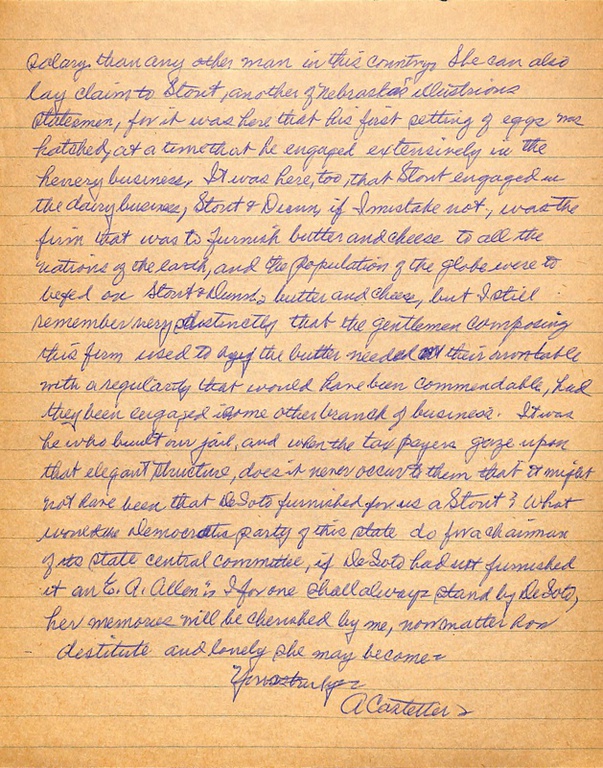 salary than any other man in this country, She can also
lay claim to Stout, another of Nebraska's illustrious
statesmen, for it was here that his first setting of eggs was
hatched, at a time that he engaged extensively in the
hennery business. It was here, too, that Stout engaged in
the dairy business, Stout & Dunn, if I mistake not, was the
firm that was to furnish butter and cheese to all the
nations of the earth, and the population of the globe were to
be fed on Stout & Dunn's butter and cheese, but I still
remember very distinctly that the gentlemen composing
this firm used to buy the butter needed their own table
with a regularity that would have been commendable, had
they been engaged in some other branch of business. It was
he who built our jail, and when the tax payers gaze upon
that elegant structure, does it never occur to them that it might
not have been that DeSoto furnished for us a Stout? What
would the Democratic party of this state do for a chairman
of its state central committee, if DeSoto had not furnished
it an E. A. Allen? I for one shall always stand by DeSoto,
her memories will be cherished by me, now matter how
destitute and lonely she may become.
Yours truly
A Castetter